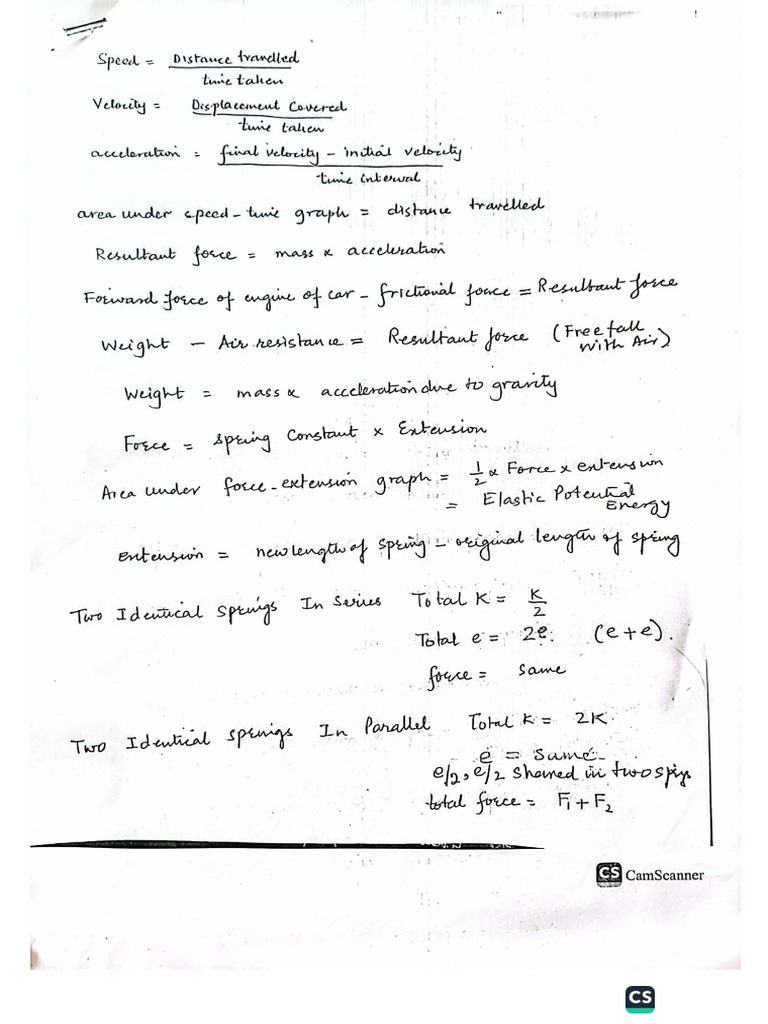 Speed = Distance travelled
time taken
Velocity = Displacement Covered
time taken
acceleration = final velocity - initial velocity
time interval
area under speed-time graph = distance travelled
Resultant force = mass x acceleration
Forward force of engine of car - frictional force = Resultant force
Weight - Air resistance = Resultant force (Free fall
with Air)
Weight = mass x acceleration due to gravity
Force = spring Constant x Extension
Area under force-extension graph = 1/2 x Force x extension
= Elastic Potential
Energy
Extension = new length of spring - original length of spring
Two Identical springs In Series Total K = K/2
Total e = 2e. (e+e).
force = same
Two Identical springs In Parallel Total K = 2K.
e = same
e/2, e/2 shared in two spigs
total force = F1 + F2
CS CamScanner
CS